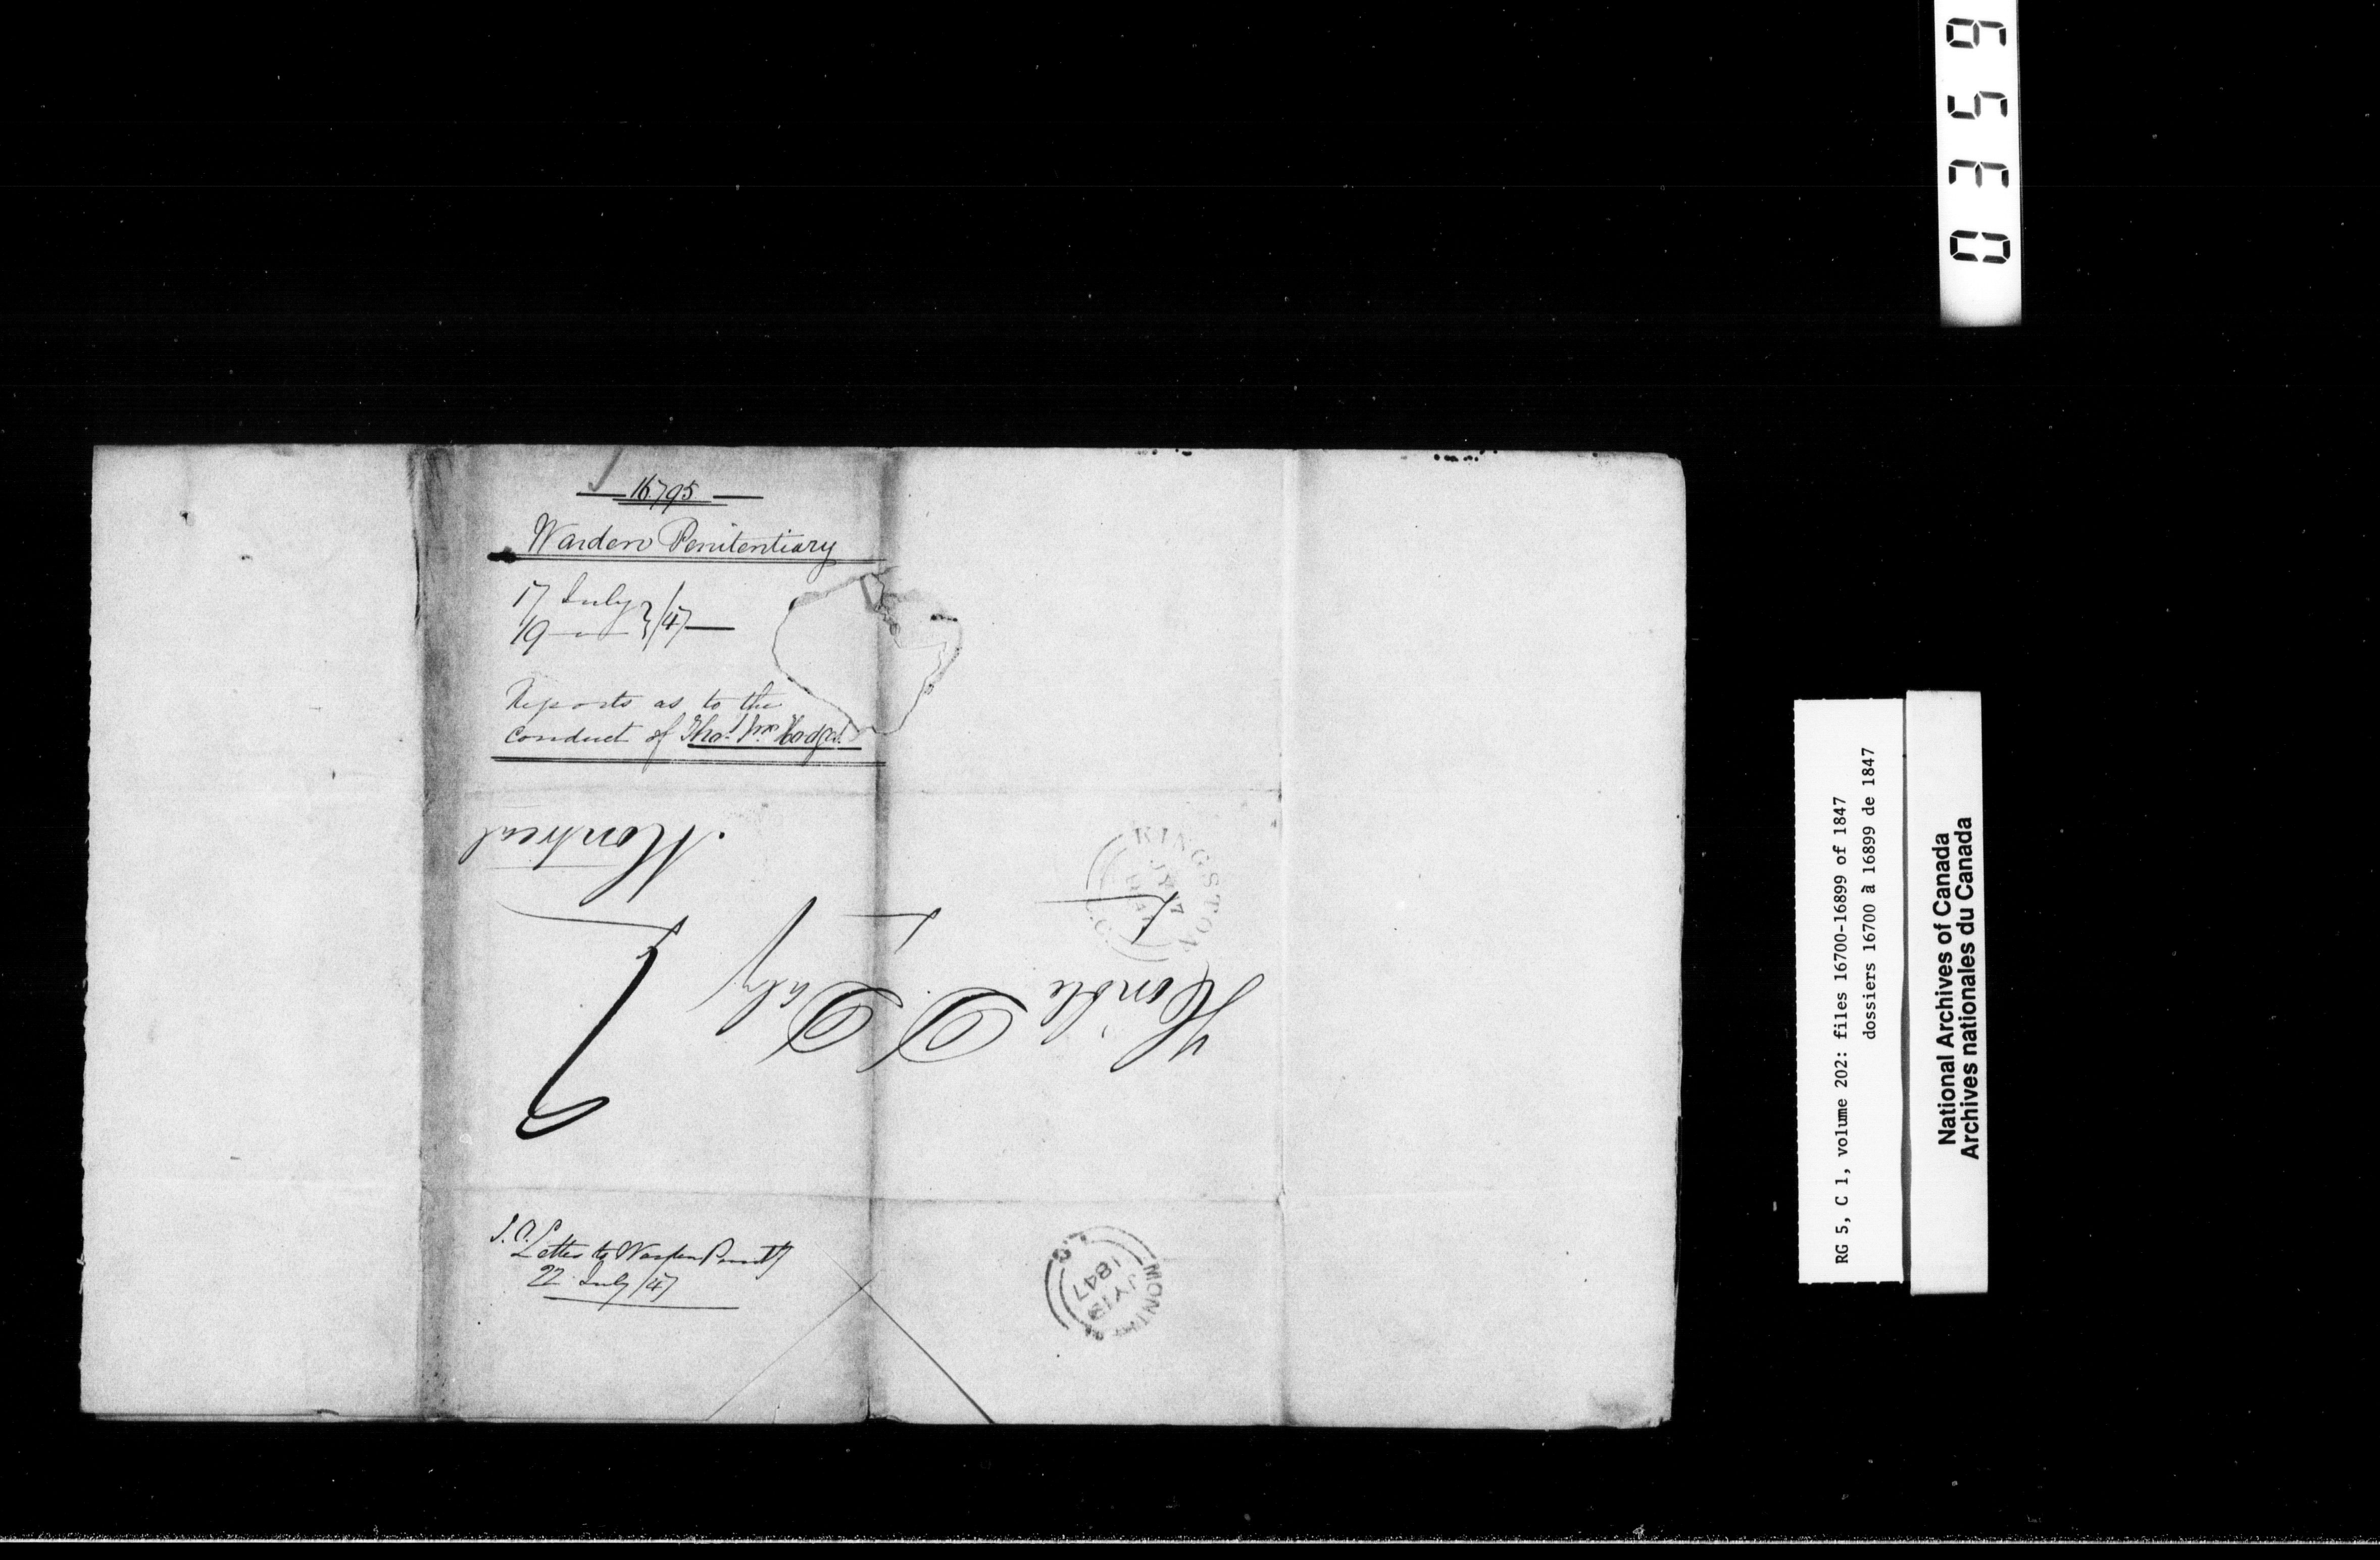 0359
16795
Warden Penitentiary
17 July } /47
19 — " —
Reports as to the
conduct of Thos. Wm.
Montreal
Honble D Daly
KINGSTON
JY 17
MONTREAL
JY 19
1847
L.C.
Letter to Warden
22 July /47
RG 5, C 1, volume 202: files 16700-16899 of 1847
dossiers 16700 à 16899 de 1847
National Archives of Canada
Archives nationales du Canada